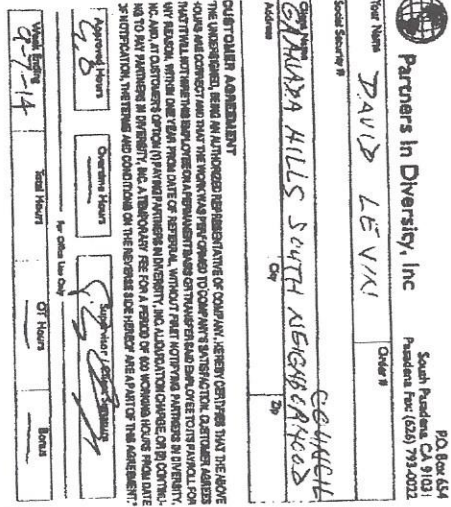 Partners In Diversity, Inc
P.O. Box 654
South Pasadena, CA 91031
Pasadena Fax: (626) 793-0022
Your Name
DAVID LEVIN
Order #
Social Security #
Client Name
GRANADA HILLS SOUTH NEIGHBORHOOD
COUNCIL
Address
City
Zip
CUSTOMER AGREEMENT
THE UNDERSIGNED, BEING AN AUTHORIZED REPRESENTATIVE OF COMPANY, HEREBY CERTIFIES THAT THE ABOVE
HOURS ARE CORRECT AND THAT THE WORK WAS PERFORMED TO COMPANY'S SATISFACTION. CUSTOMER AGREES
THAT IT WILL NOT HIRE THIS EMPLOYEE ON A PERMANENT BASIS OR TRANSFER SAID EMPLOYEE TO ITS PAYROLL FOR
ANY REASON, WITHIN ONE YEAR FROM DATE OF REFERRAL, WITHOUT FIRST NOTIFYING PARTNERS IN DIVERSITY,
INC. AND, AT CUSTOMER'S OPTION (1) PAYING PARTNERS IN DIVERSITY, INC. A LIQUIDATION CHARGE, OR (2) CONTINU-
ING TO PAY PARTNERS IN DIVERSITY, INC. A TEMPORARY FEE FOR A PERIOD OF 600 WORKING HOURS FROM DATE
OF NOTIFICATION. THE TERMS AND CONDITIONS ON THE REVERSE SIDE HEREOF ARE A PART OF THIS AGREEMENT.
Approved Hours
Overtime Hours
Supervisor / Client Signature
For Office Use Only
Week Ending
9-7-14
Total Hours
OT Hours
Bonus